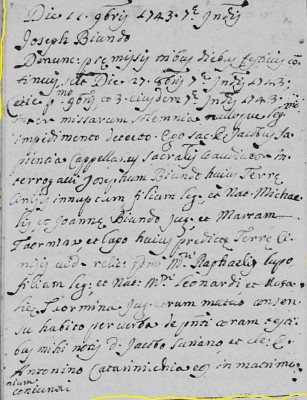 Die 11 9bris 1743 7e Indis
Joseph Biundo
Denunc: premissis tribus diebus festivis co
tinuis scilt Die 27 8bris 7e Indis 1743,
et 3 eiusdem 7e Indis 1743
inter missarum solemnia nulloque leg:mo
impedimento detecto. Ego sac: D. Jacobus Sa
pientia Cappellanus sacralis audiator in
terrogavi Josephum Biundo huius Terre
Cinisi innuptum filium leg: et Nat: Michae
lis et Joanne Biundo jug: et Mariam
Taormina et Lapo huius predicte Terre Ci
nisi vid: relic: qm Mri Raphaelis Lupo
filiam leg: et Nat: Mri Leonardi et Rosa
lie Taormina jug: eorum mutuo consen
su habito per verba de pnti coram testi
bus mihi notis D. Jacobo Suriano, et cle: D.
Antonino Catarinichia eos in matrimo
nium
coniunxi